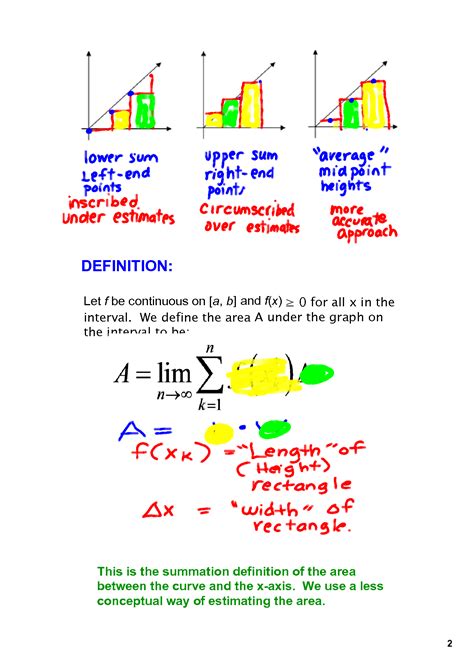 lower sum
Left-end
points
inscribed
under estimates
upper sum
right-end
points
Circumscribed
over estimates
"average"
midpoint
heights
more
accurate
approach
DEFINITION:
Let f be continuous on [a, b] and f(x) ≥ 0 for all x in the
interval. We define the area A under the graph on
the interval to be:
A = lim n→∞ n ∑ k=1
A = ·
f(xK) = "Length" of
(Height)
rectangle
Δx = "width" of
rectangle.
This is the summation definition of the area
between the curve and the x-axis. We use a less
conceptual way of estimating the area.
2